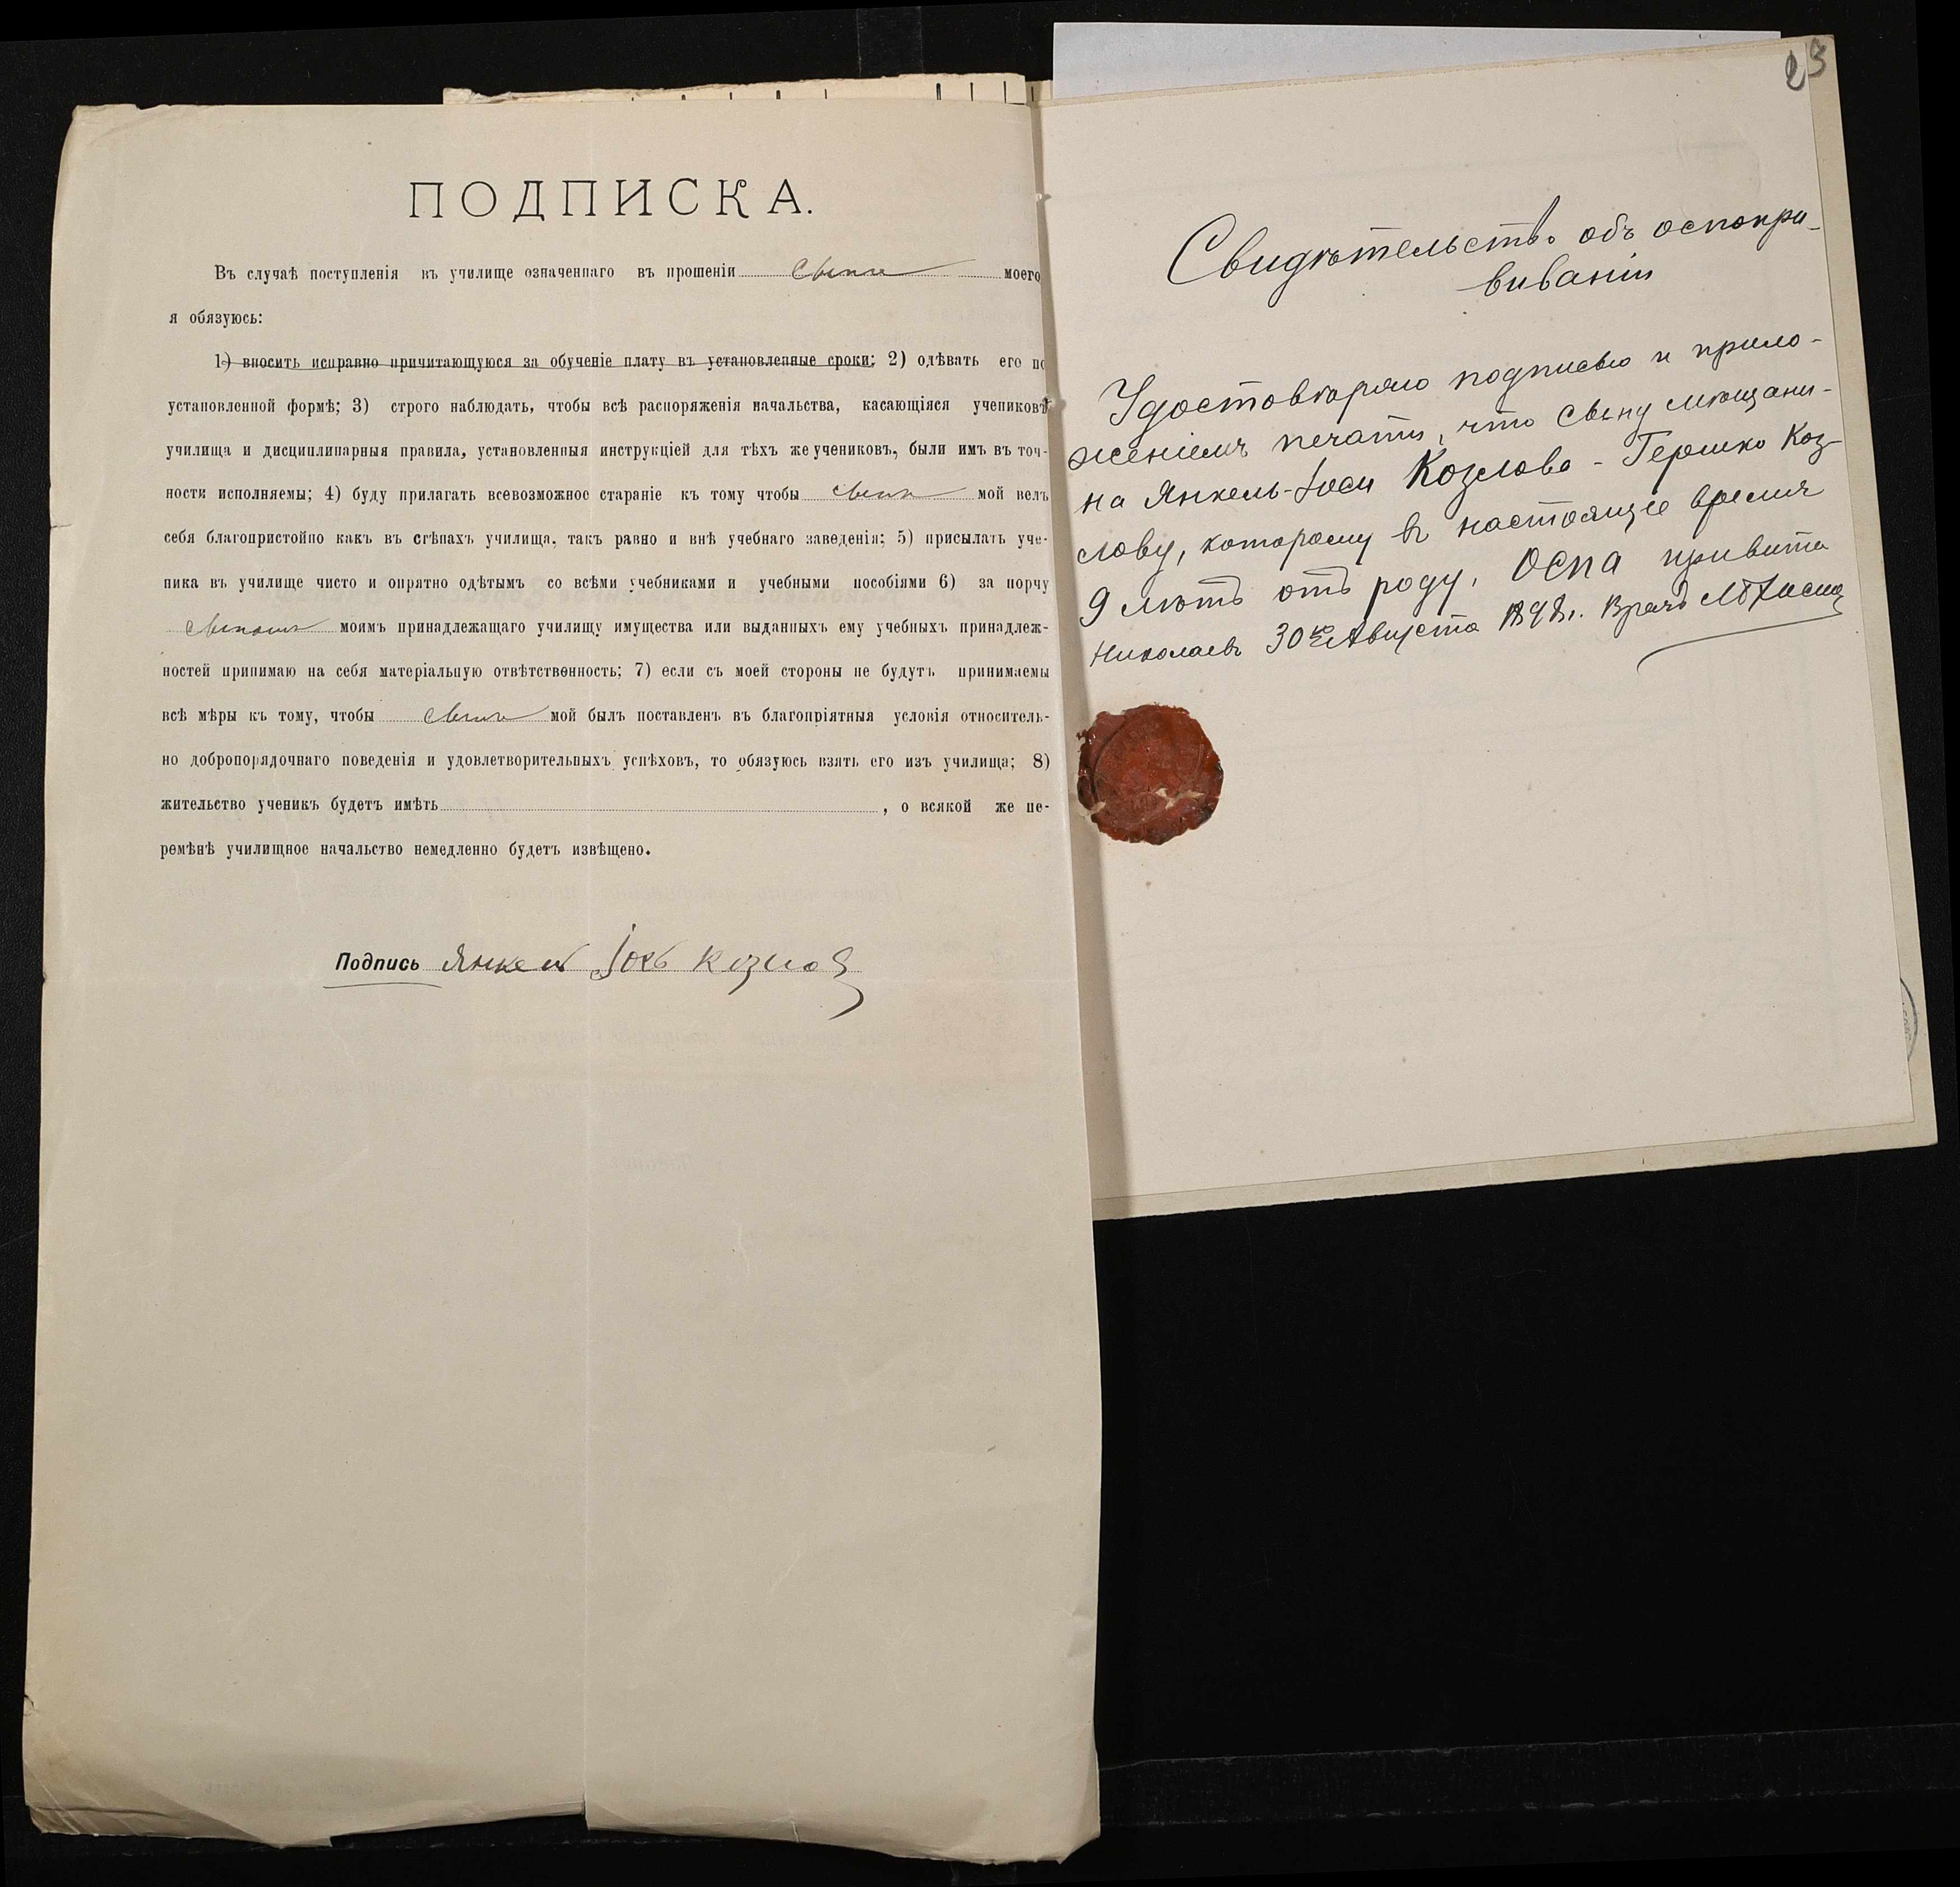 ПОДПИСКА.
Въ случаѣ поступленія въ училище означеннаго въ прошеніи сына моего
я обязуюсь:
1) вносить исправно причитающуюся за обученіе плату въ установленные сроки; 2) одѣвать его по
установленной формѣ; 3) строго наблюдать, чтобы всѣ распоряженія начальства, касающіяся учениковъ
училища и дисциплинарныя правила, установленныя инструкціей для тѣхъ же учениковъ, были имъ въ точ-
ности исполняемы; 4) буду прилагать всевозможное стараніе къ тому чтобы сынъ мой велъ
себя благопристойно какъ въ стѣнахъ училища, такъ равно и внѣ учебнаго заведенія; 5) присылать уче-
ника въ училище чисто и опрятно одѣтымъ со всѣми учебниками и учебными пособіями 6) за порчу
сыномъ моимъ принадлежащаго училищу имущества или выданныхъ ему учебныхъ принадлеж-
ностей принимаю на себя матеріальную отвѣтственность; 7) если съ моей стороны не будутъ принимаемы
всѣ мѣры къ тому, чтобы сынъ мой былъ поставленъ въ благопріятныя условія относитель-
но добропорядочнаго поведенія и удовлетворительныхъ успѣховъ, то обязуюсь взять его изъ училища; 8)
жительство ученикъ будетъ имѣть , о всякой же пе-
ремѣнѣ училищное начальство немедленно будетъ извѣщено.
Подпись Янкель Іось Козлов
23
Свидѣтельство объ оспопри-
виваніи
Удостовѣряю подписью и прило-
женіемъ печати, что сыну мѣщани-
на Янкель-Іоси Козлова - Гершко Коз-
лову, которому въ настоящее время
9 лѣтъ отъ роду, оспа привита
Николаевъ 30го Августа 1898г. Врачъ